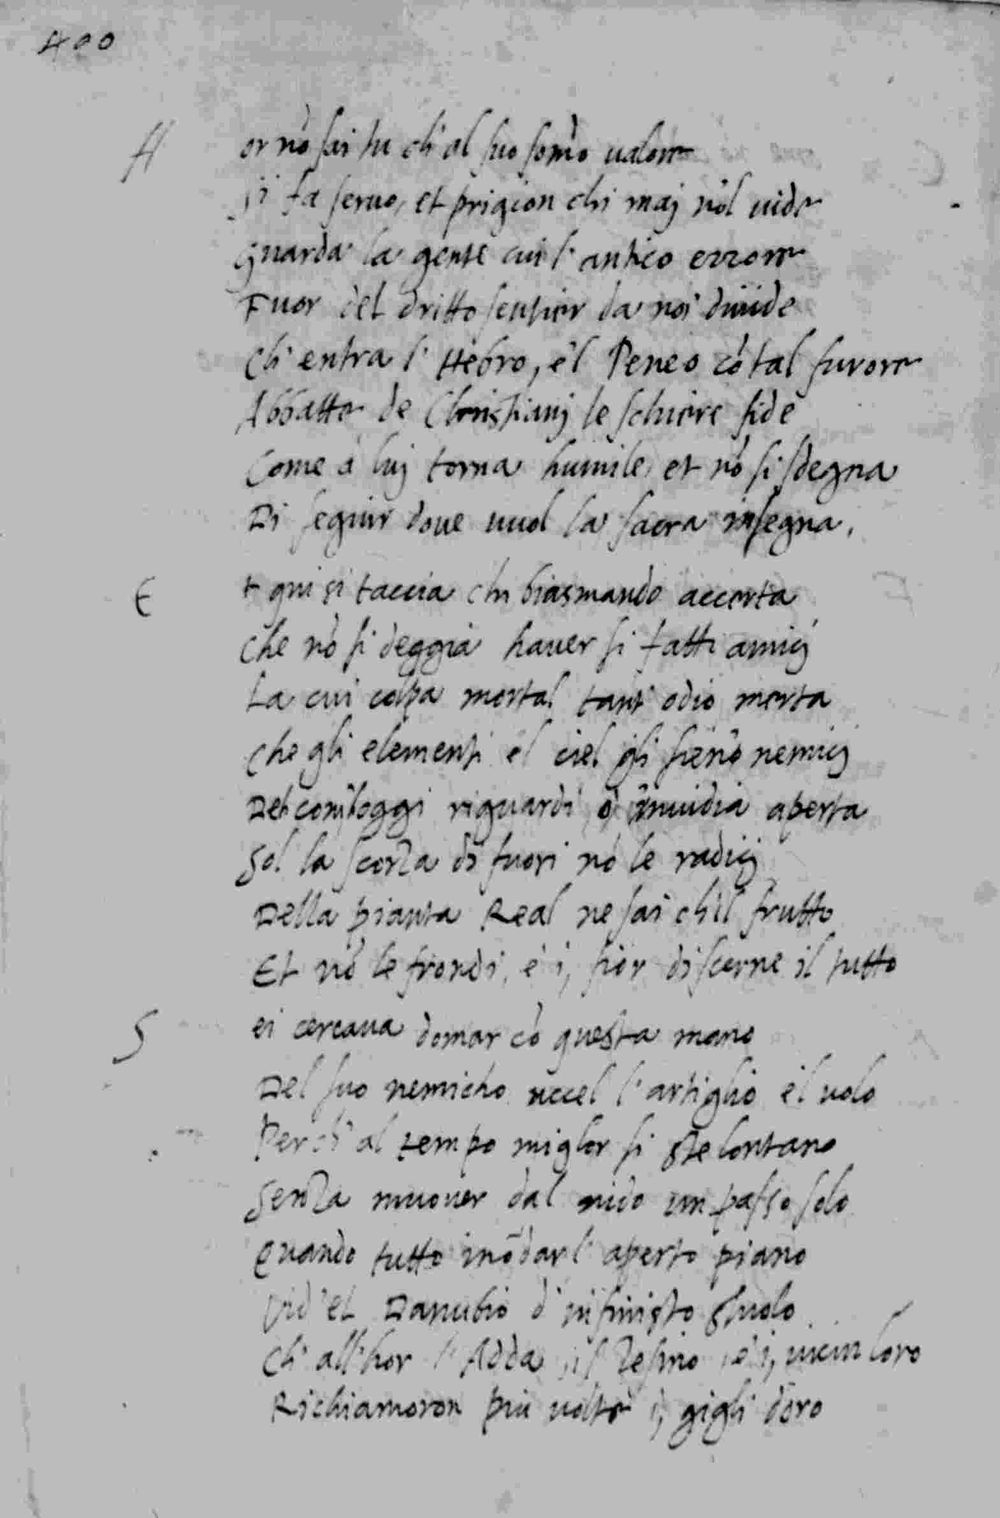 400
H or nõ sai tu ch'al suo som̃o ualore
si fa seruo, et prigion chi maj nõl uide
Guarda la gente cui l'antico errore
Fuor del dritto sentier da noi diuide
Ch'entra l'Hebro, e'l Peneo cõ tal furore
Abbatte de Christianj le schiere fide
Come à luj torna humile, et nõ si sdegna
Di seguir doue vuol la sacra insegna.
E t qui si taccia chi biasmando accerta
Che nõ si deggia hauer si fatti amicj
La cui colpa mortal tant'odio merta
Che gli elementi e'l ciel gli sieno nemicj
riguardi ò inuidia aperta
Sol la scorza di fuori nõ le radicj
Della pianta Real ne sai ch'il frutto
Et nõ le frondi, e i, fior discerne il tutto
S ei cercaua domar cõ questa mano
Del suo nemicho uccel l'artiglio e'l uolo
Perch'al tempo miglor si ste lontano
Senza muouer dal nido un passo solo
Quando tutto inõdar l'aperto piano
Vid'el Danubio d'infinito stuolo
Ch'all'hor l'Adda, il Tesino, e i, uicin loro
Richiamoron più uolte i, gigli d'oro